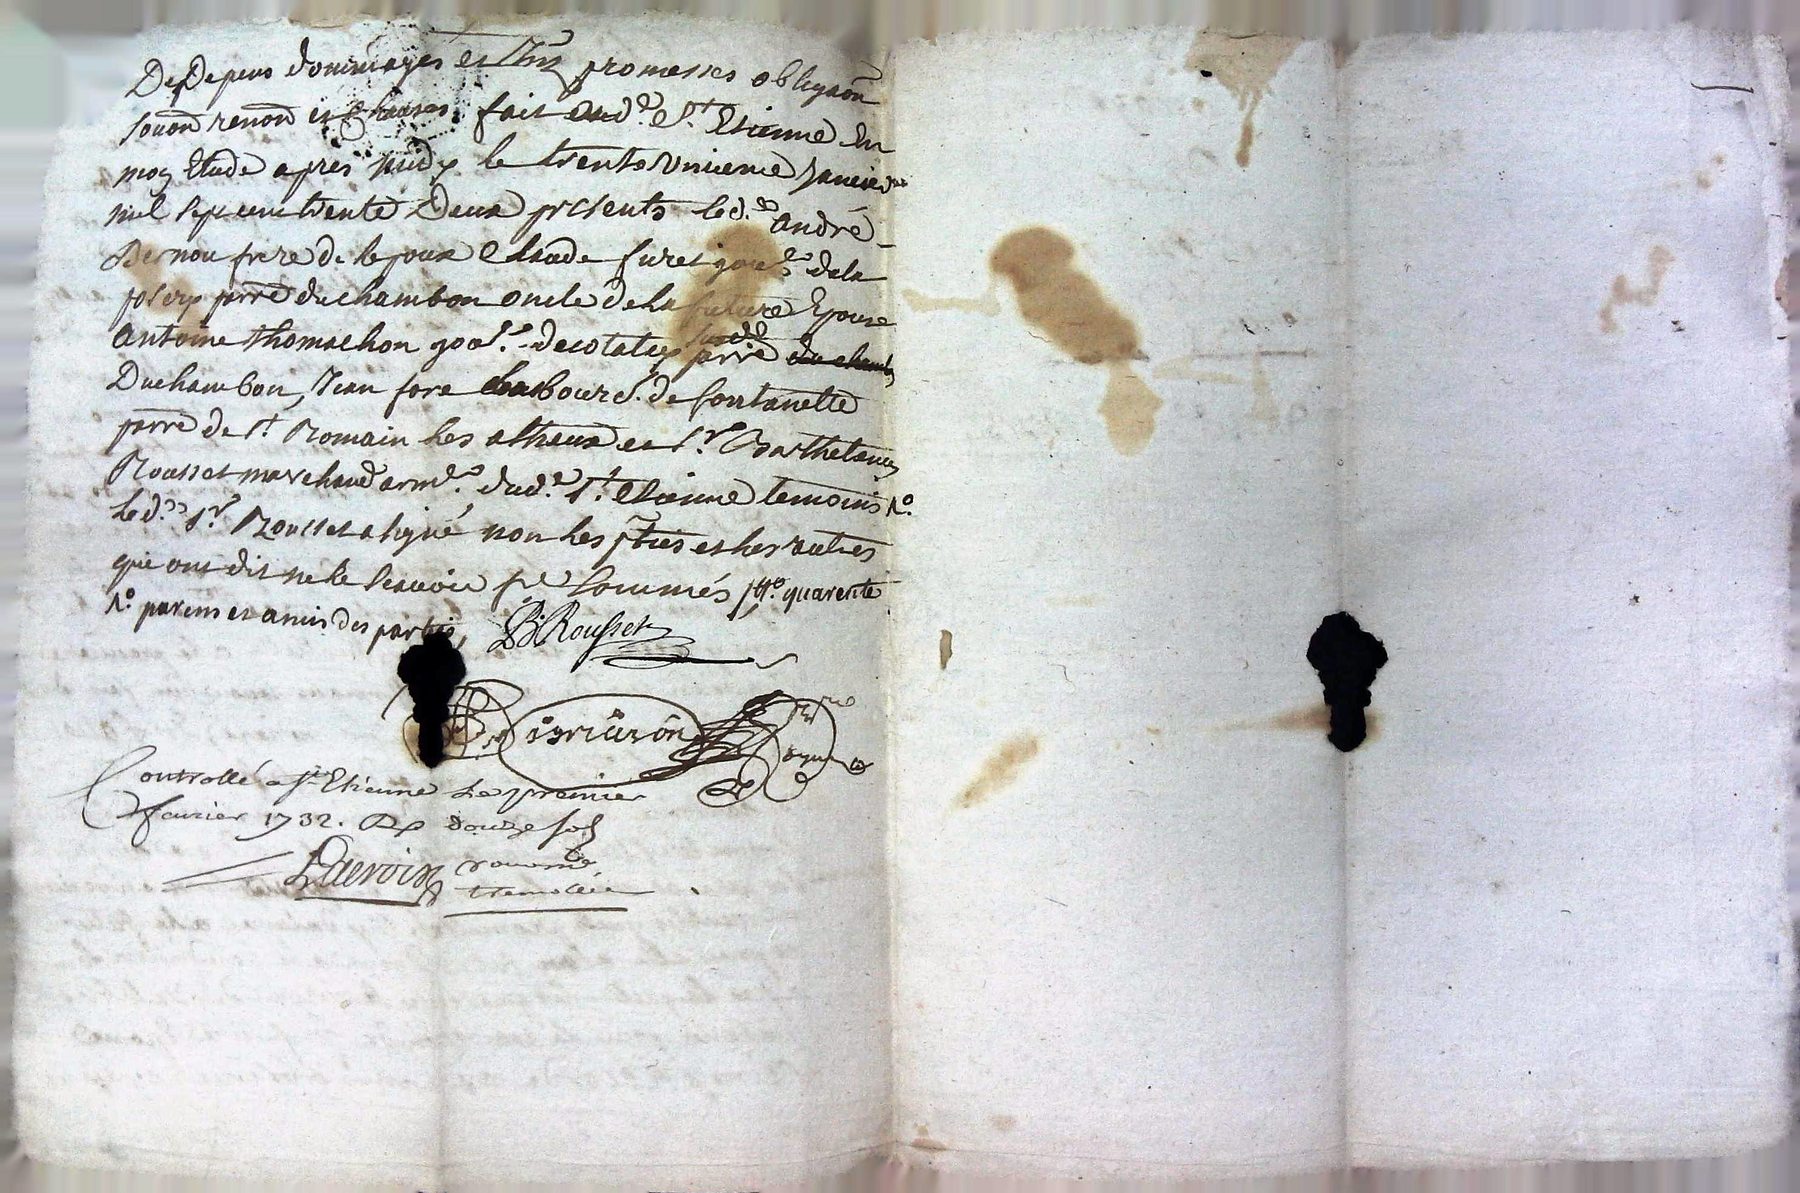 De Depens dommages et Intz promesses obligaon
soumon renon et Clauses. fait aud.e St Etienne En
moy Etude apres midy le trente Unieme Janvier
mil sept cent trente Deux presents led.d André
Bernou frere de lepoux Claude furet de la
parre du chambon oncle de la future Epouse
Antoine thomachon de cotatay susd parre du chambon
Duchambon, Jean fore de fontanette
parre de St Romain les atheux et Sr Barthelemy
Rousset marchand arm.r dud.e St Etienne temoins No.
led. Sr Rousset a signé non les pties et les autres
qui ont dit ne le scavoir de ce sommés quarente
No parens et amis des parties, B: Rousset
Controllé a St Etienne Le premier
fevrier 1732. Rx douze sols
Delacroix